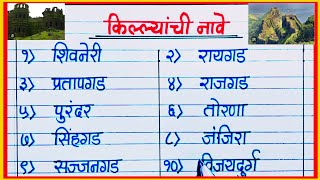 किल्ल्यांची नावे
१) शिवनेरी २) रायगड
३) प्रतापगड ४) राजगड
५) पुरंदर ६) तोरणा
७) सिंहगड ८) जंजिरा
९) सज्जनगड १०) विजयदुर्ग